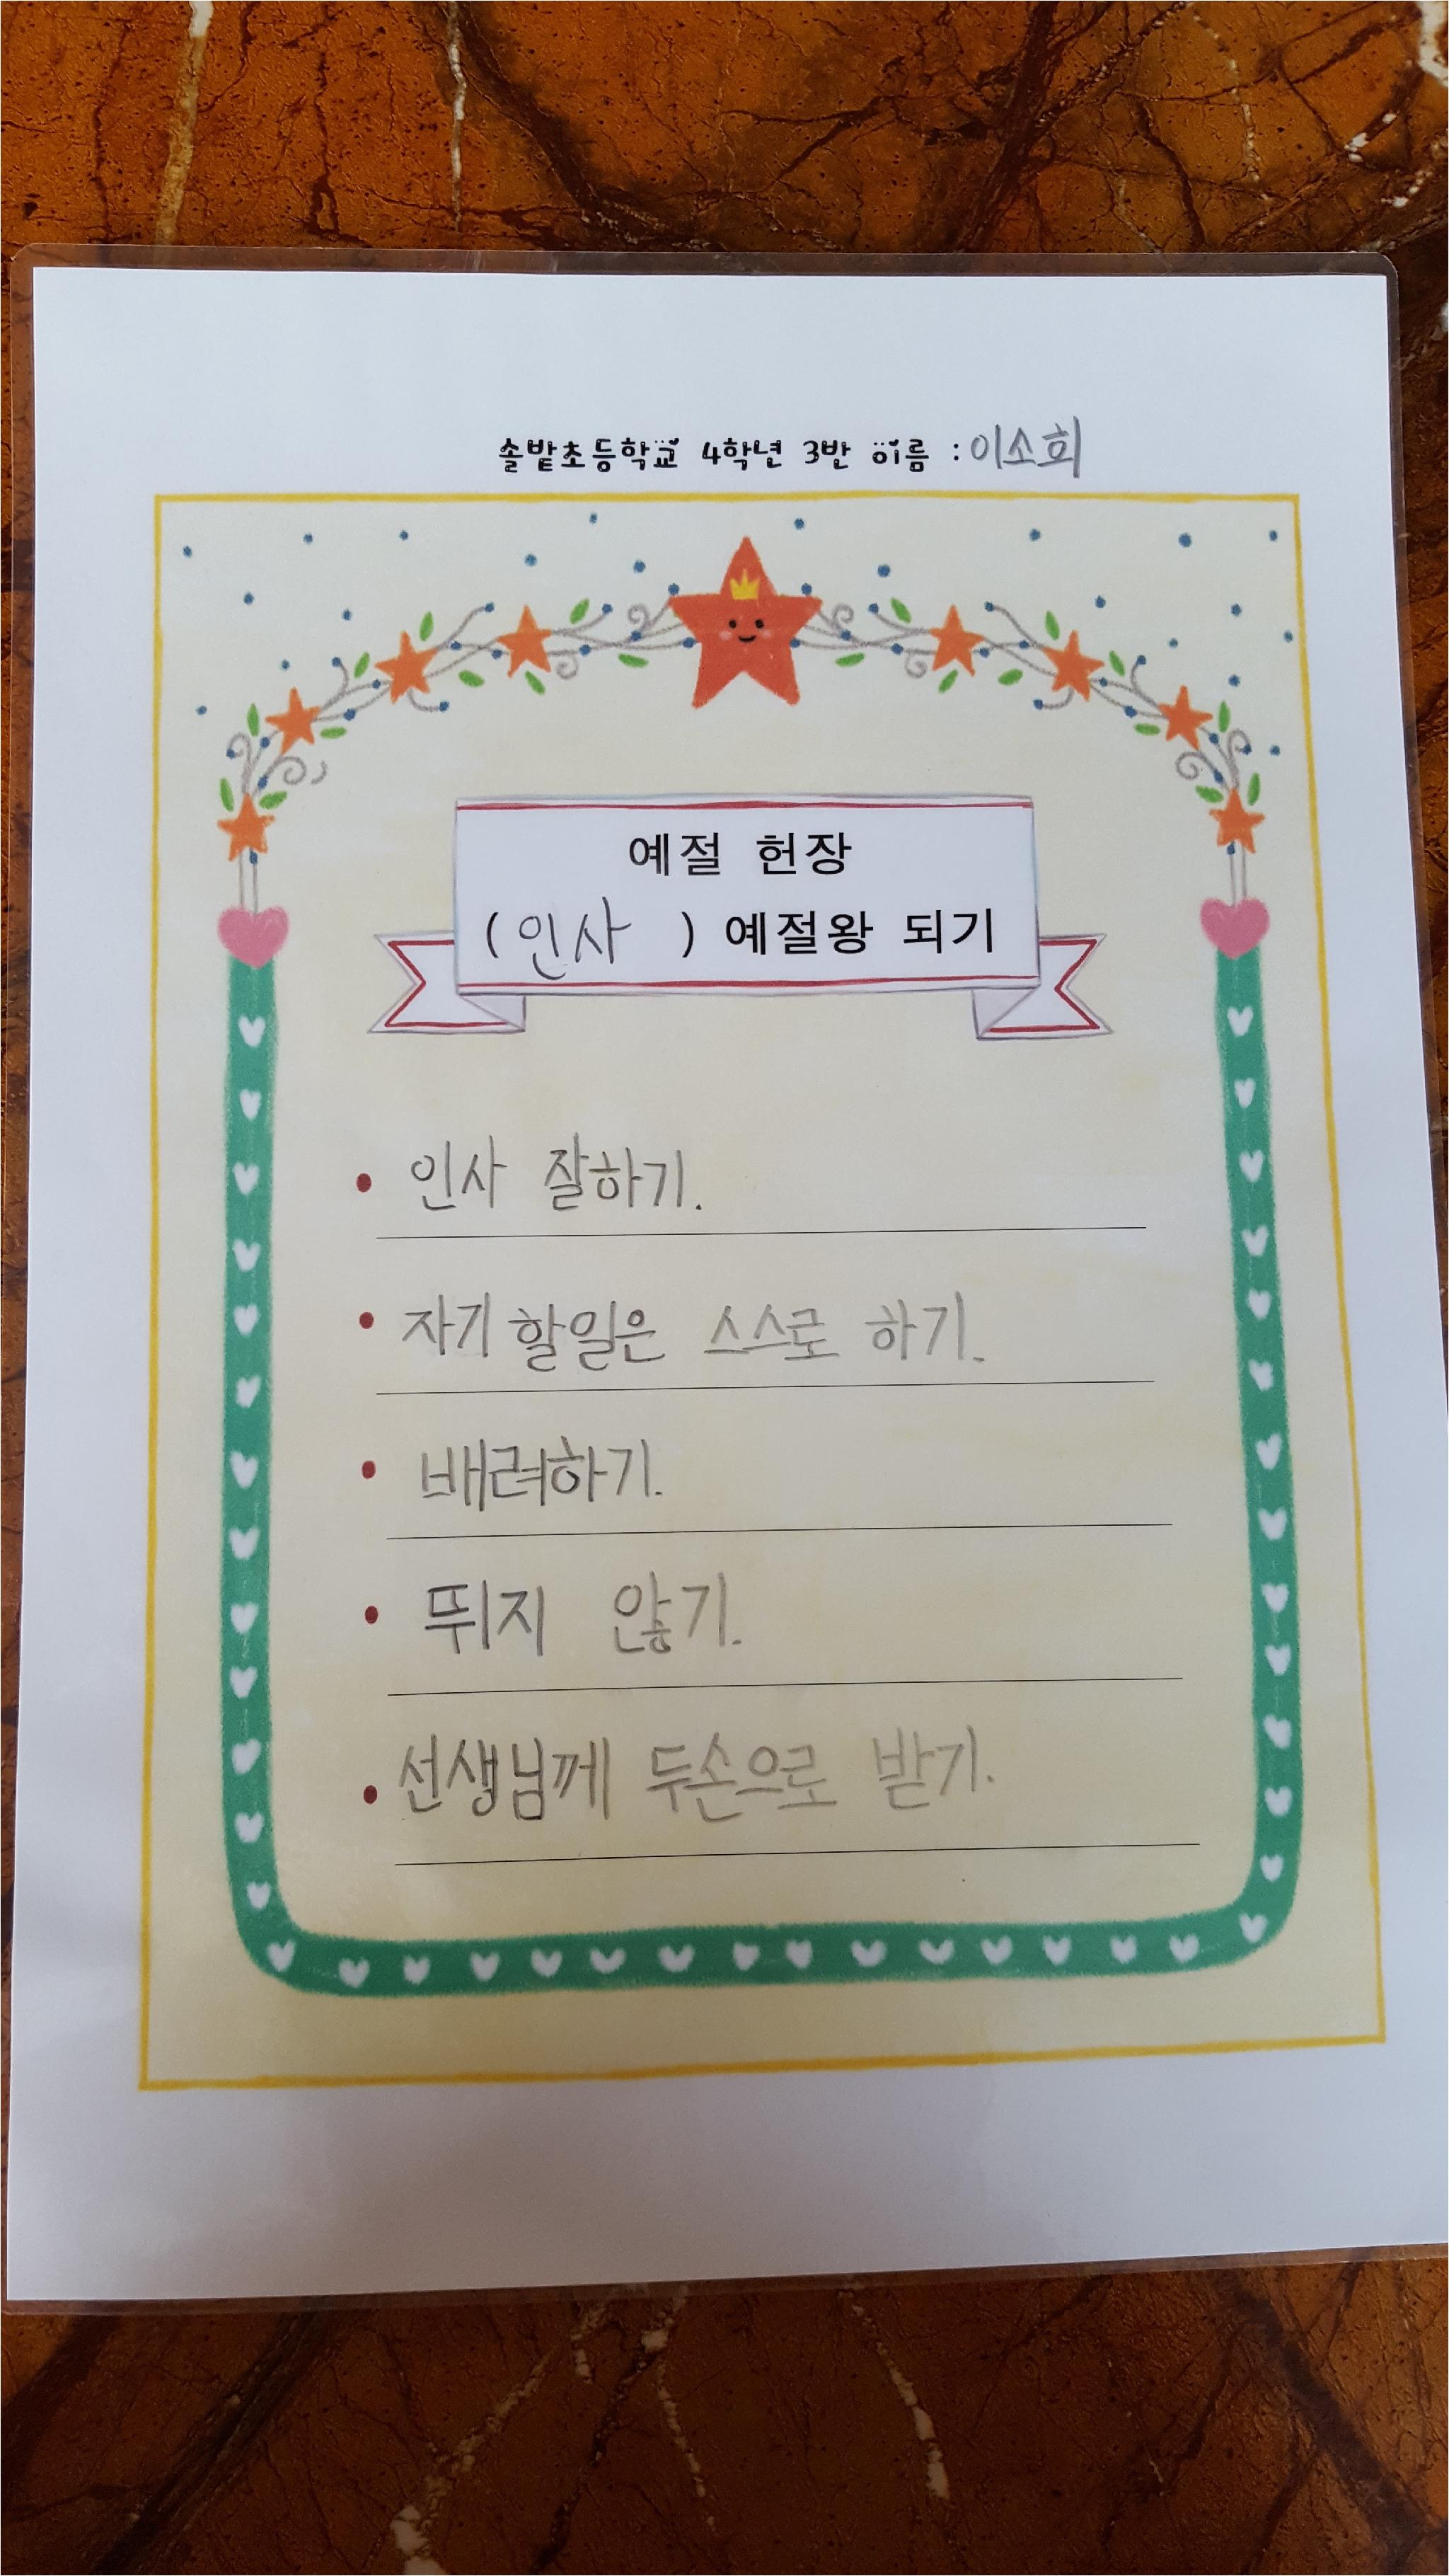 솔밭초등학교 4학년 3반 이름 : 이소희
예절 헌장
( 인사 ) 예절왕 되기
• 인사 잘하기.
• 자기 할일은 스스로 하기.
• 배려하기.
• 뛰지 않기.
• 선생님께 두손으로 받기.